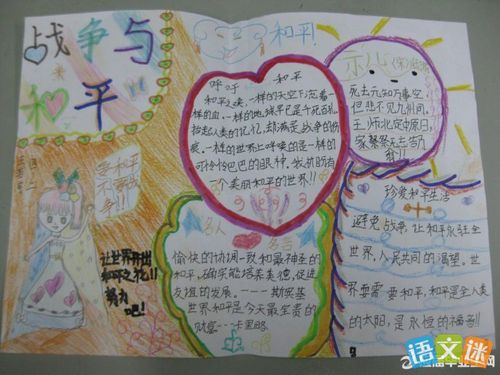 战争与
和平
和平!
呼吁 和平
和平之美,一样的天空下,范着一
样的血,一样的地
抬起人类的记忆,却满是战争的伤
痕,一样的世界上呼唤的是一样的
可怜巴巴的眼神,我们盼有
一个美丽和平的世界!!
示儿
死去元知万事空
但悲不见九州同
王师北定中原日,
家祭无忘告乃
翁!!
要和平
不要战
争!!
让世界开出
和平之花!!
努力
吧!
名人 名言
愉快的协调一致和最神圣的
和平,确实能培养美德,促进
友谊的发展。---斯宾塞
世界和平是今天最宝贵的
财富--卡里略
珍爱和平生活
避免战争,让和平永驻全
世界,人民共同的渴望。世
界需要和平,和平是全人类
的太阳,是永恒的福音!!
语文迷